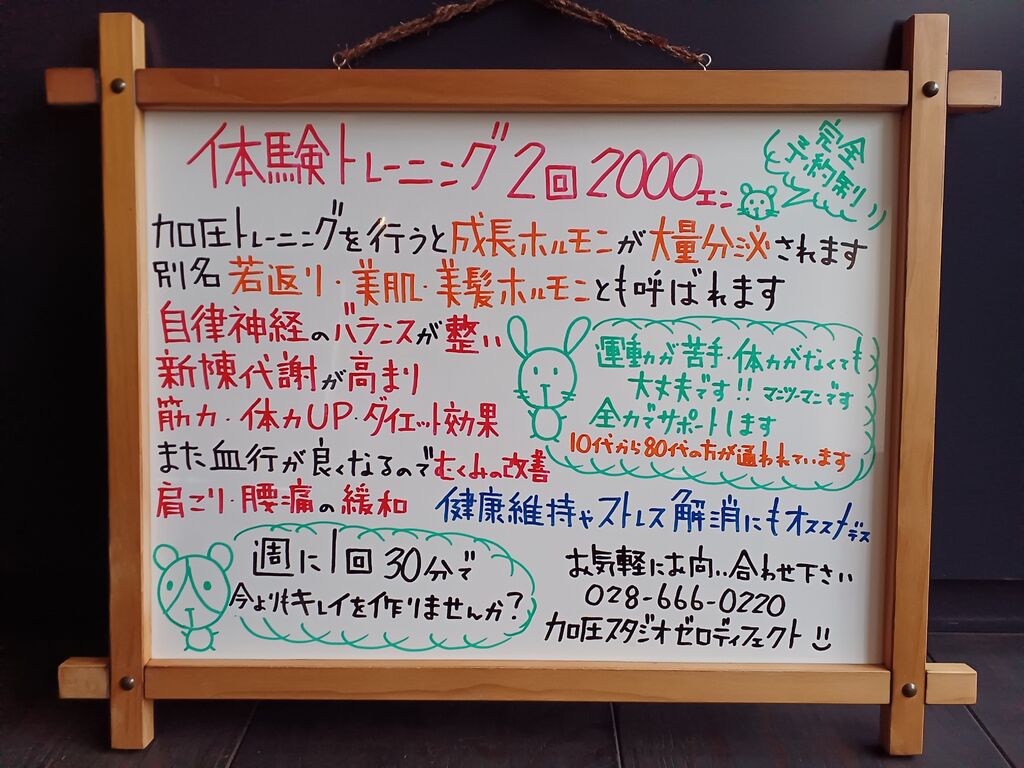 体験トレーニング2回2000エン
完全
予約制
加圧トレーニングを行うと成長ホルモンが大量分泌されます
別名若返り・美肌・美髪ホルモンとも呼ばれます
自律神経のバランスが整い
新陳代謝が高まり
筋力・体力UP・ダイエット効果
また血行が良くなるのでむくみの改善
肩こり・腰痛の緩和
運動が苦手・体力がなくても
大丈夫です!!マンツーマンです
全力でサポートします
10代から80代の方が通われています
健康維持やストレス解消にもオススメデス
週に1回30分で
今よりもキレイを作りませんか?
お気軽にお問い合わせ下さい
028-666-0220
加圧スタジオゼロディフェクト